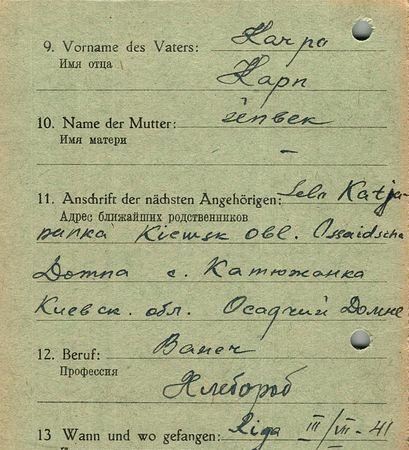 9. Vorname des Vaters: Karpa
Имя отца Карп
10. Name der Mutter:
Имя матери –
11. Anschrift der nächsten Angehörigen: Katja-
Адрес ближайших родственников
Kiewsk obl. Ossaidscha
Домna с. Катюжанка
Киевск. обл. Осадчий Домне
12. Beruf:
Профессия Хлебороб
13 Wann und wo gefangen: Riga III/VII-41